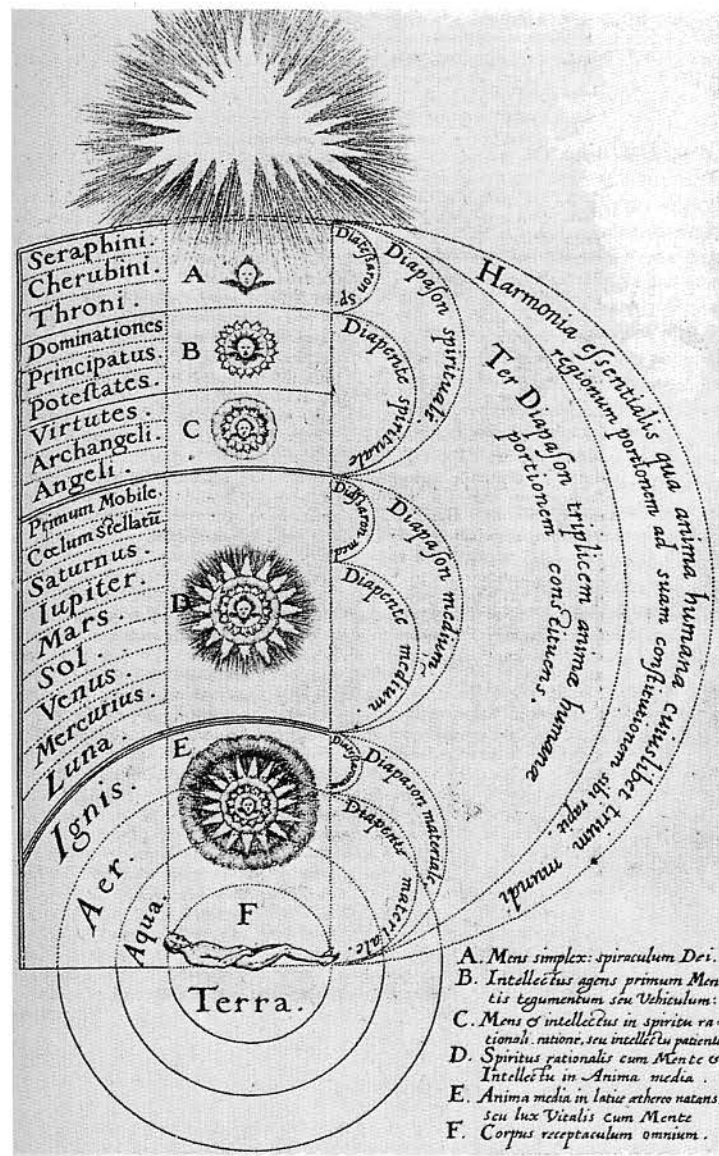 Seraphini.
Cherubini.
Throni.
Dominationes
Principatus.
Poteſtates.
Virtutes.
Archangeli.
Angeli.
Primum Mobile.
Cœlum Stellatū
Saturnus.
Iupiter.
Mars.
Sol.
Venus.
Mercurius.
Luna.
Ignis.
Aer.
Aqua.
Terra.
A
B
C
D.
E
F
Diateſſaron sp
Diapaſon spirituale
Diapente spirituale
med
Diapaſon medium
Diapente medium.
Diapason materiale
Diapente materiale.
Ter Diapaſon triplicem animæ humanæ
portionem conſtituens.
Harmonia eſſentialis qua anima humana cuiuslibet trium mundi
regionum portionem ad suam conſtitutionem sibi rapit
A. Mens simplex: spiraculum Dei.
B. Intellectus agens primum Men
tis tegumentum seu Vehiculum:
C. Mens & intellectus in spiritu ra-
tionali. ratione, seu intellectu patiente
D. Spiritus rationalis cum Mente &
Intellectu in Anima media.
E. Anima media in latice æthereo natans,
seu lux Vitalis cum Mente
F. Corpus receptaculum omnium.